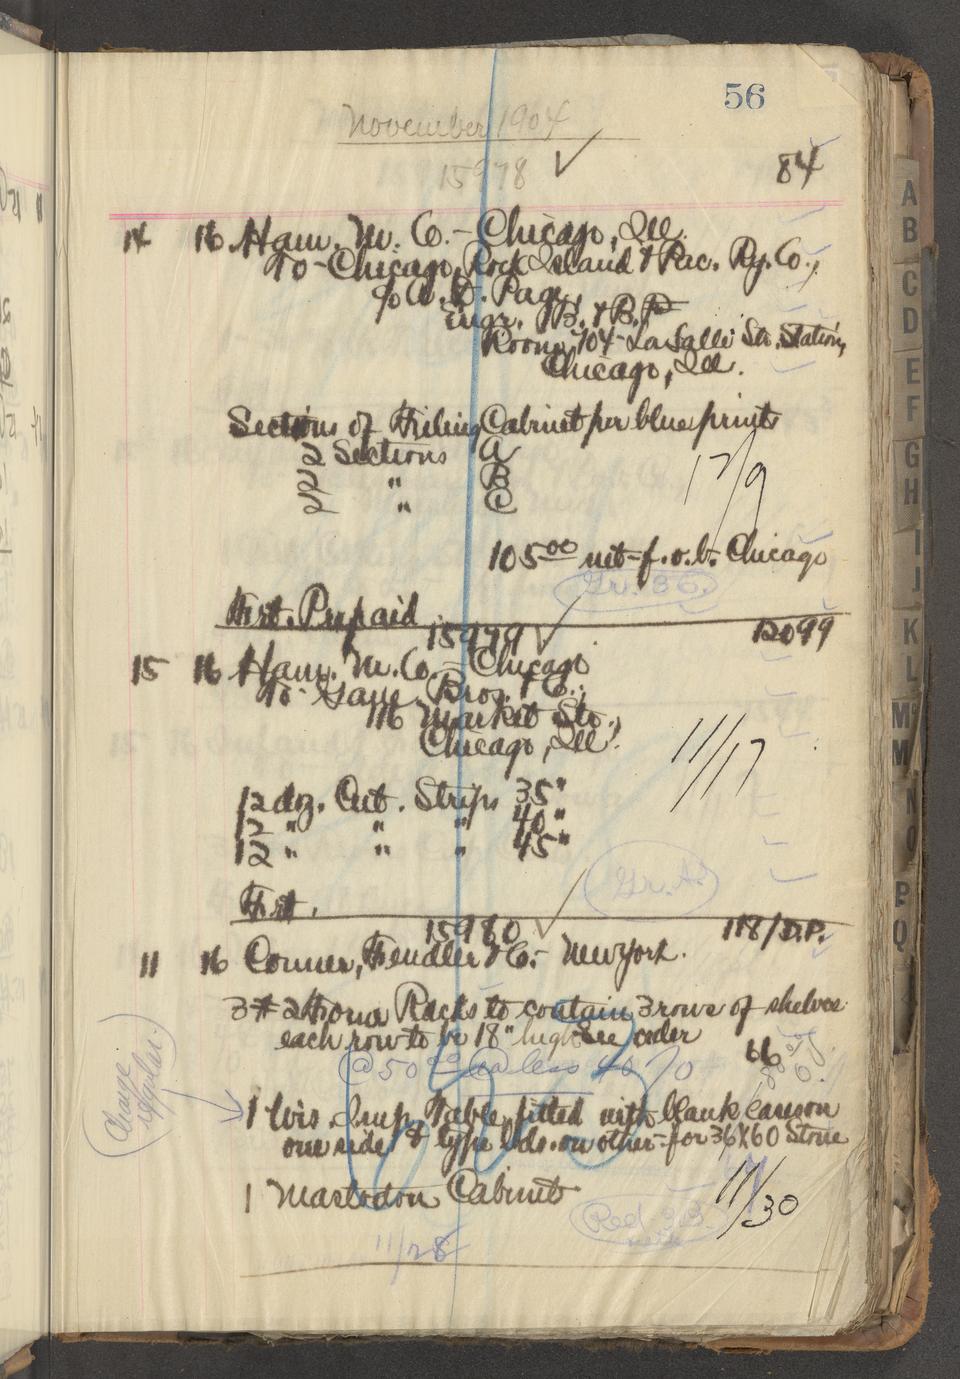 56
November 1904
15978 ✓
84
14 16 Ham. M. Co. - Chicago, Ill.
To - Chicago, Rock Island & Pac. Ry. Co.,
c/o A. D. Page,
Engr. B. & B.
Room 704 - La Salle St. Station,
Chicago, Ill.
Sections of Filing Cabinet per blue prints
2 Sections A
2 " B
2 " C
12/9
105 00 net - f.o.b. Chicago
Gr. 3
Frt. Prepaid
15979 ✓ 12099
15 16 Ham. M. Co. - Chicago
To - Gane Bros. & Co.,
116 Market St.,
Chicago, Ill.
11/17
12 doz. Cut. Strips 35"
12 " " " 40"
12 " " " 45"
Gr. A.
Frt.
15980 ✓ 118/D.P.
11 16 Conner, Fendler & Co. - New York.
3 # 2 Racks to contain 3 rows of shelves
each row to be 18" high See order
66
@ 50 00 less 40 %
Charge Regular.
1 Wis. Imp. Table, fitted with blank cases on
one side & type bds. on other - for 36X60 Stone
1 Mastodon Cabinet
11/30
Red
11/28
A
B
C
D
E
F
G
H
I
J
K
L
Mc
M
N
O
P
Q